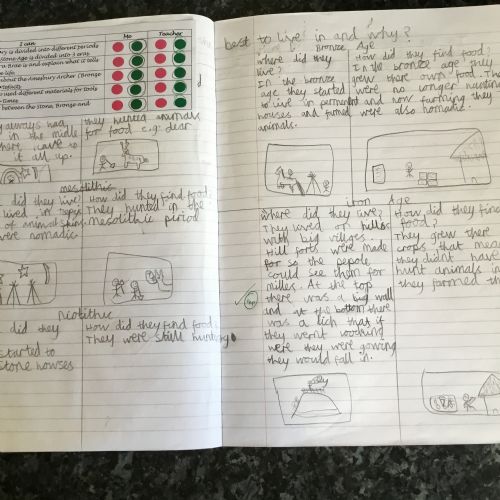 I can Me Teacher
ry is divided into different periods
Stone Age is divided into 3 eras
ra Brae is and explain what it tells
e life.
about the Amesbury Archer (Bronze
rtefacts
used different materials for tools
Times
between the Stone, Bronze and
always had
in the midle
there cave
it all up.
they hunted animals
for food e.g. dear
mesolithic
did they live?
lived in
of animal skins
were nomadic.
How did they find food:
They hunted in the
mesolithic period
neolithic
did they
started to
Stone howses
How did they find food:
They were still hunting
best to live in and why?
Bronze Age
where did they
live?
In the bronze
age they started
to live in permenent
houses and farmed
animals.
How did they find food:
In the bronze age they
grew there own food. They
were no longer hunting
and now farming they
were also nomadic.
iron Age
where did they live?
They lived on hilles
with big villges.
Hill forts were made
for so the pepole
could see them for
milles. At the top
there was a big wall
and at the bottom there
was a
that if
they wernt
were they were gowing
they would fall in.
How did they find
food?
They grew there
crops that mea
they didnt have
hunt animals i
they farmed th